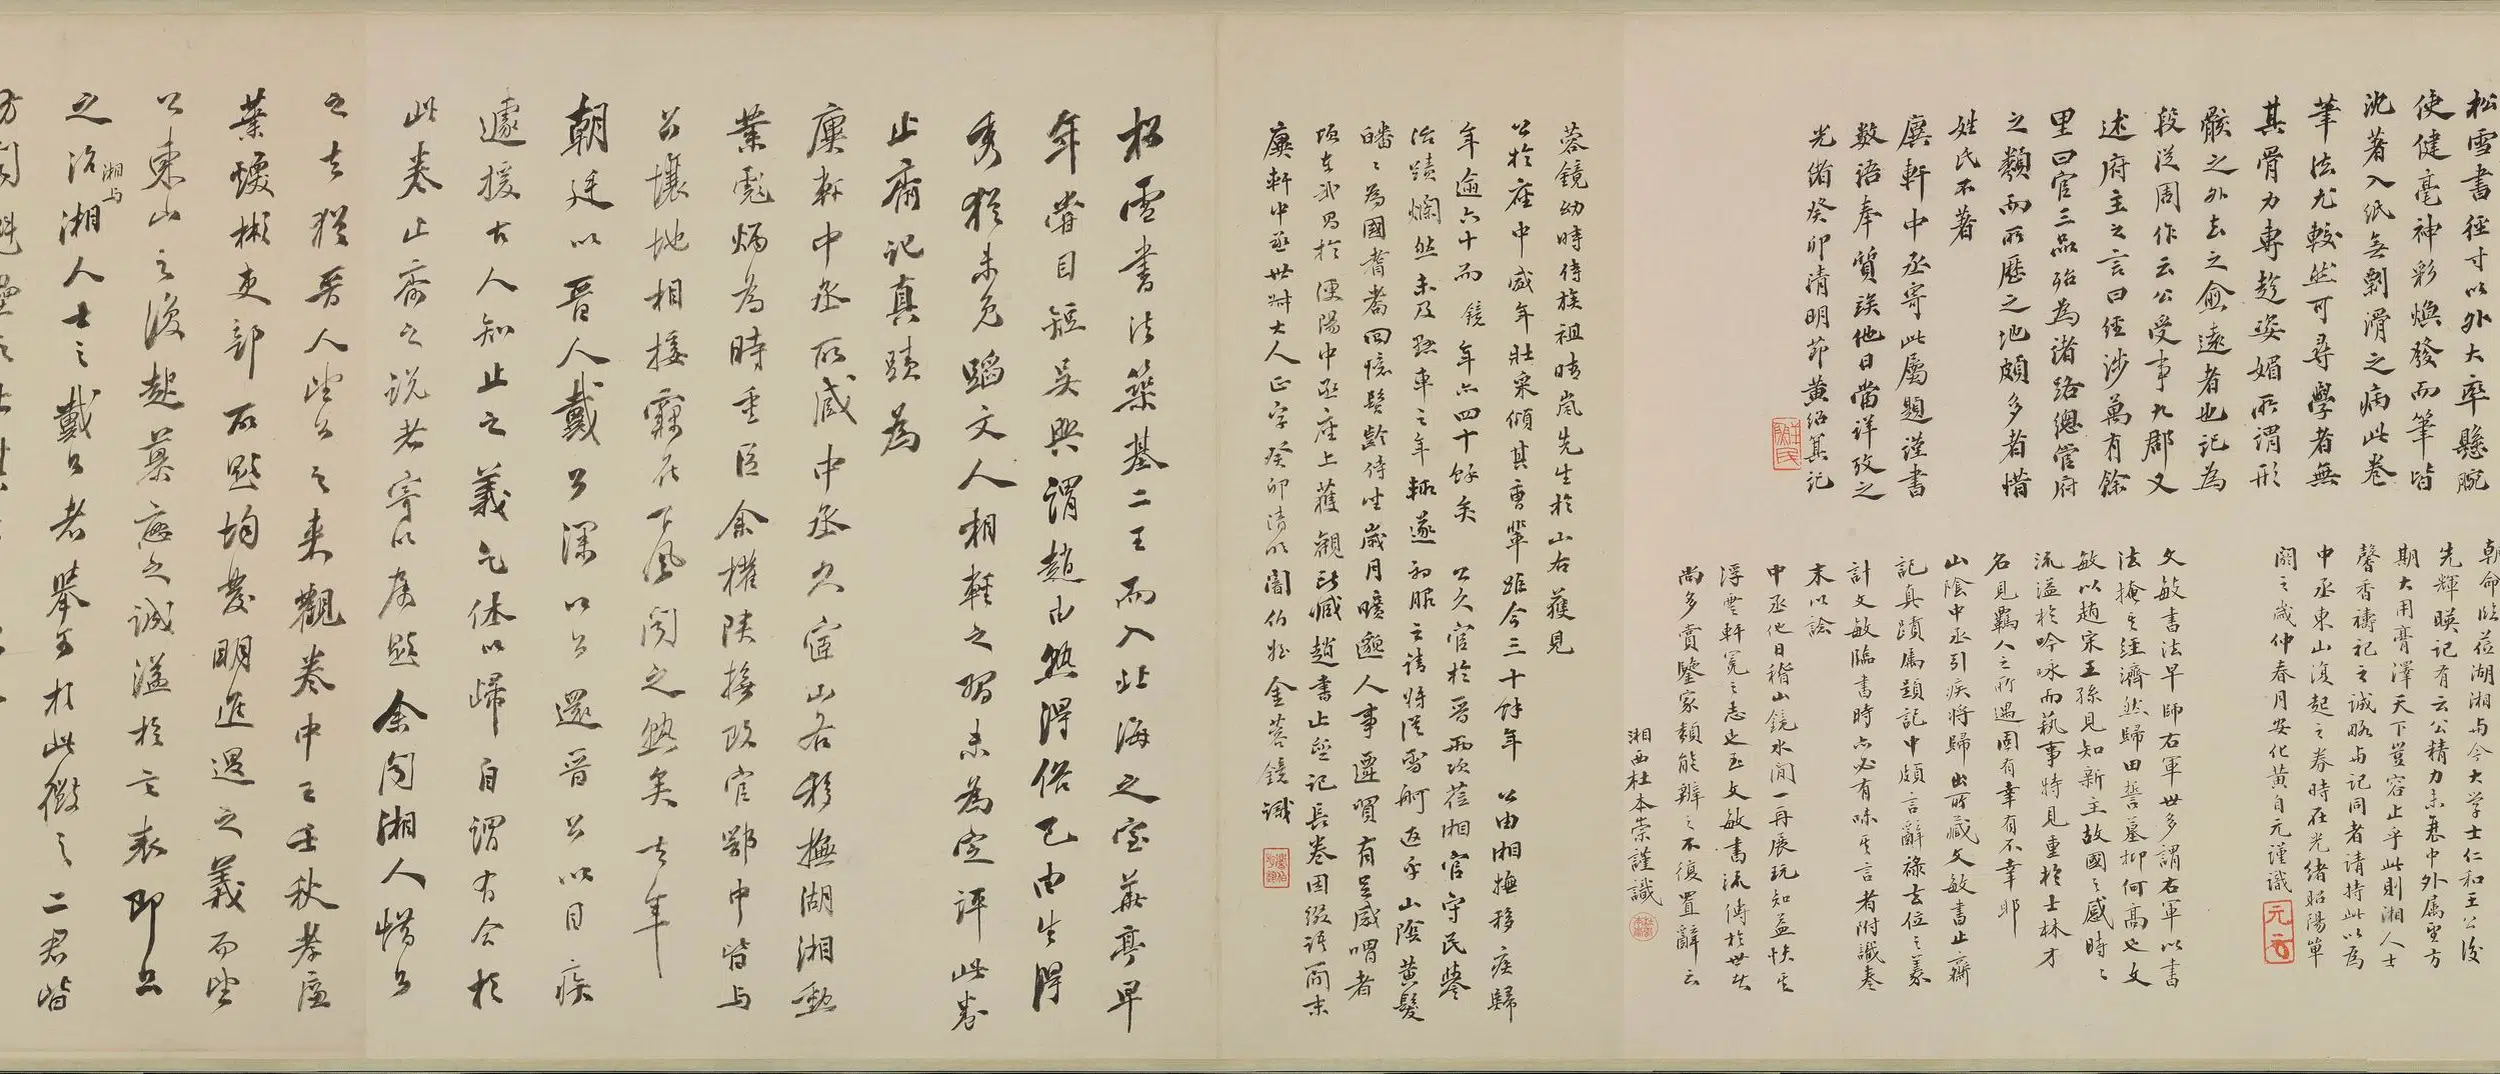 松雪書徑寸以外大率懸腕
使健毫神彩煥發而筆皆
沈著入紙無剽滑之病此卷
筆法尤較然可尋學者無
其骨力專趁姿媚所謂形
骸之外去之愈遠者也記為
段從周作云公受事九郡又
述府主之言曰經涉萬有餘
里曰官三品殆為諸路總管府
之類而所歷之地頗多者惜
姓氏不著
廙軒中丞寄此屬題謹書
數語奉質俟他日當詳攷之
光緒癸卯清明節黃紹箕記
朝命臨莅湖湘与今大學士仁和王公後
先輝暎記有云公精力未衰中外属望方
期大用膏澤天下豈容止乎此則湘人士
馨香禱祀之誠略与記同者請持此以為
中丞東山復起之券時在光緒昭陽單
閼之歲仲春月安化黃自元謹識
元
文敏書法早師右軍世多謂右軍以書
法掩其經濟然歸田誓墓抑何高也文
敏以趙宋王孫見知新主故國之感時時
流溢於吟咏而藝事特見重於士林才
名見羈人之所遇固有幸有不幸耶
山陰中丞引疾將歸出所藏文敏書止齋
記真蹟属題記中頗言辭祿去位之義
計文敏臨書時亦必有味其言者附識卷
末以諗
中丞他日稽山鏡水間一再展玩知益怏其
浮雲軒冕之志也至文敏書流傳於世者
尚多賞鑒家類能辨之不復置辭云
湘西杜本崇謹識
蓉鏡幼時侍族祖晴嵐先生於山右獲見
公於座中盛年壯采傾其曹輩距今三十餘年 公由湘撫移疾歸
年逾六十而 鏡年亦四十餘矣 公久官於晉兩次莅湘官守民譽
治蹟爛然未及懸車之年輒遂初服云請將浮雪舸返乎山陰黃髮
皤皤為國耆耈回憶髫齡侍坐歲月曠邈人事遷貿有足感喟者
頃在武昌於湩陽中丞座上獲觀此臧趙書止齋記長卷因綴語簡末
廙軒中丞世叔大人正字癸卯清明閻伯姓金蓉鏡識
松雪書法築基二王而入北海之室華亭早
年嘗目短吳興謂趙由熟得俗已由生得
秀猶未免蹈文人相輕之習未為定評此卷
止齋記真蹟為
廙軒中丞所藏中丞久宦山右移撫湖湘勳
業彪炳為時重臣余權陝撫改官鄂中皆与
公壤地相接竊在下風聞之熟矣去年
朝廷以晉人戴公深以公還晉公以目疾
遽援古人知止之義乞休以歸自謂有合於
此卷止齋之說者寄以屬題余聞湘人惜公
之去猶晉人望公之來觀卷中王壬秋孝廉
葉煥彬吏部所題均發明進退之義而望
公東山之復起慕戀之誠溢於言表即公
之治湘人士之戴公者舉可於此徵之二君皆
湘与